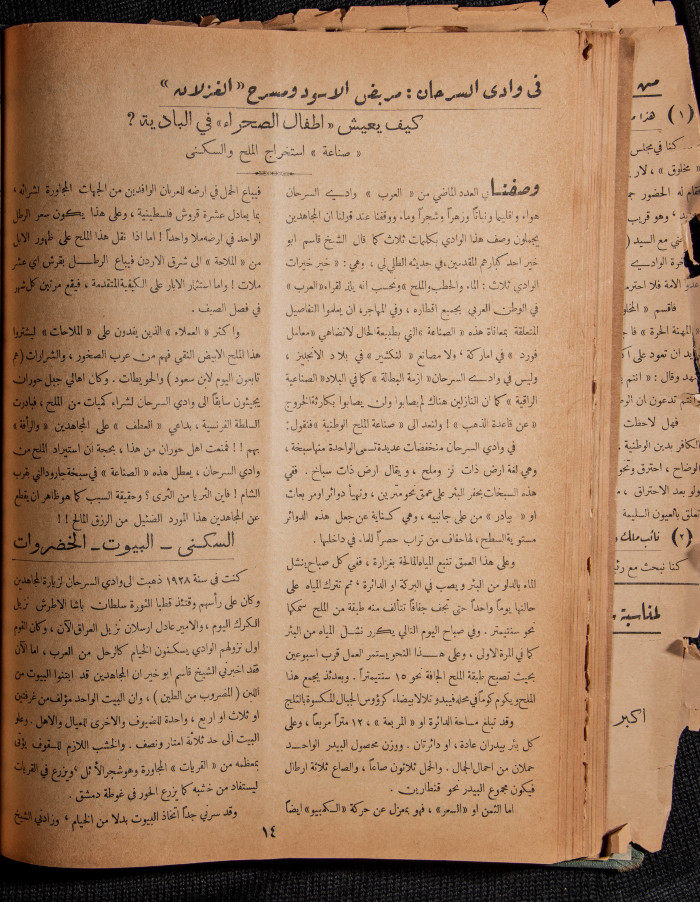 في وادي السرحان : مربض الاسود ومسرح «الغزلان»
كيف يعيش «اطفال الصحراء» في البادية ؟
« صناعة » استخراج الملح والسكنى
وصفنا في العدد الماضي من « العرب » وادي السرحان
هواء واقليما ونباتاً وزهراً وشجراً وماء ووقفنا عند قولنا ان المجاهدين
يجملون وصف هذا الوادي بكلمات ثلاث كما قال الشيخ قاسم ابو
خير احد كبارهم المقدمين في حديثه الطلي لي ، وهي : « خير خيرات
الوادي ثلاث : الماء والحطب والملح » ونحسب انه يلذ لقراء «العرب»
في الوطن العربي بجميع اقطاره ، وفي المهاجر، ان يعلموا التفاصيل
المتعلقة بمعاناة هذه « الصناعة » التي بطبيعة الحال لا تضاهي «معامل
فورد » في اماركة ، ولا مصانع « لنكشير » في بلاد الانجليز ،
وليس في وادي السرحان «ازمة البطالة » كما في البلاد «الصناعية
الراقية » كما ان النازلين هناك لم يصابوا ولن يصابوا بكارثة الخروج
« عن قاعدة الذهب » ! ولنعد الى « صناعة الملح الوطنية » فنقول :
في وادي السرحان منخفضات عديدة تسمى الواحدة منها سبخة ،
وهي لغة ارض ذات نز وملح ، ويقال ارض ذات سباخ . ففي
هذه السبخات يحفر البئر على عمق نحو مترين ، وتهيأ دوائر او مربعات
او « بيادر » من على جانبيه ، وهي كناية عن جعل هذه الدوائر
مستوية السطح ، لها حفاف من تراب حصراً للماء في داخلها .
وعلى هذا العمق تنبع المياه المالحة بغزارة ، ففي كل صباح ينشل
الماء بالدلو من البئر ويصب في البركة او الدائرة ، ثم تترك المياه على
حالتها يوماً واحداً حتى تجف جفافاً تتألف منه طبقة من الملح سمكها
نحو سنتيمتر . وفي صباح اليوم التالي يكرر نشل المياه من البئر
كما في المرة الاولى ، وعلى هذا النحو يستمر العمل قرب اسبوعين
بحيث تصبح طبقة الملح الجافة نحو ١٥ سنتيمتراً . وبعدئذ يجمع هذا
الملح ويكوم كوماً في محله فيبدو تلالا بيضاء كرؤوس الجبال المكسوة بالثلج
وقد تبلغ مساحة الدائرة او « المربعة » ، ١٢ متراً مربعاً ، وعلى
كل بئر بيدران عادة ، او دائرتان . ووزن محصول البيدر الواحد
حملان من احمال الجمال . والحمل ثلاثون صاعاً ، والصاع ثلاثة ارطال
فيكون مجموع البيدر نحو قنطارين .
اما الثمن او «السعر» ، فهو بمعزل عن حركة «الكمبيو» ايضاً
فيباع الحمل في ارضه للعربان الوافدين من الجهات المجاورة لشرائه ،
بما يعادل عشرة قروش فلسطينية ، وعلى هذا يكون سعر الرطل
الواحد في ارضه ملا واحداً ! اما اذا نقل هذا الملح على ظهور الابل
من « الملاحة » الى شرق الاردن فيباع الرطل بقرش اي عشر
ملات ! واما استثمار الابار على الكيفية المتقدمة ، فيقع مرتين كل شهر
في فصل الصيف .
واكثر « العملاء » الذين يفدون على « الملاحات » ليشتروا
هذا الملح الابيض النقي فهم من عرب الصخور ، والشرارات ( هم
تابعون اليوم لابن سعود ) والحويطات . وكان اهالي جبل حوران
يجيئون سابقاً الى وادي السرحان لشراء كميات من الملح ، فبادرت
السلطة الفرنسية ، بداعي « العطف » على المجاهدين « والرأفة »
بهم !! فمنعت اهل حوران من هذا ، بحجة ان استيراد الملح من
وادي السرحان ، يعطل هذه « الصناعة » في سبخة جارود التي قرب
الشام ! فاين الثريا من الثرى ؟ وحقيقة السبب كما هو ظاهر ان يقطع
عن المجاهدين هذا المورد الضئيل من الرزق المالح !!
السكنى - البيوت - الخضروات
كنت في سنة ١٩٢٨ ذهبت الى وادي السرحان لزيارة المجاهدين
وكان على رأسهم وقتئذ قطبا الثورة سلطان باشا الاطرش نزيل
الكرك اليوم ، والامير عادل ارسلان نزيل العراق الآن ، وكان القوم
اول نزولهم الوادي يسكنون الخيام كالرحل من العرب ، اما الآن
فقد اخبرني الشيخ قاسم ابو خير ان المجاهدين قد ابتنوا البيوت من
اللبن ( المضروب من الطين ) ، وان البيت الواحد مؤلف من غرفتين
او ثلاث او اربع ، واحدة للضيوف والاخرى للعيال والاهل . وعلو
البيت الى حد ثلاثة امتار ونصف . والخشب اللازم للسقوف يؤتى
بمعظمه من « القريات » المجاورة وهو شجر الأثل ، ويزرع في القريات
ليستفاد من خشبه كما يزرع الحور في غوطة دمشق .
وقد سرني جداً اتخاذ البيوت بدلا من الخيام ، وزادني الشيخ
١٤
من
( ١ ) هذا
كنا في مجلس
« مخلوق » ، لار
فقام له الحضور
، وهو قريب
مع السيد (
الوادي
الامة فلا
فاقسم « المخلو
« المهنة الحرة »
ان تعود على
وقال : « انتم
وانتم تدعون ان
فهل لاحظت
الكافر بدين الوطنية
الوضاح ، احترق
بعد الاحتراق ،
تعلق بالعيون السليمة
( ٢ ) نائب
كنا نبحث مع
لمناسبة
اكبر